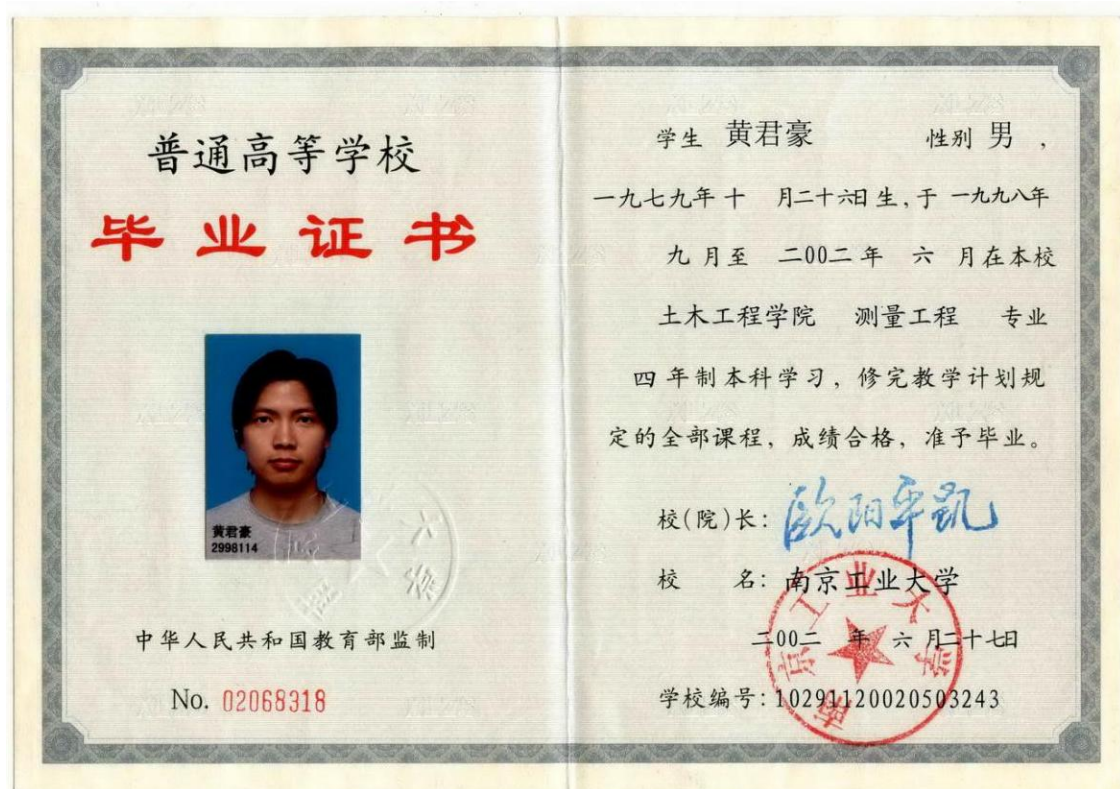 普通高等学校
毕业证书
黄君豪
2998114
中华人民共和国教育部监制
No. 02068318
学生 黄君豪 性别 男 ,
一九七九年 十 月二十六日生, 于 一九九八年
九 月至 二00二 年 六 月在本校
土木工程学院 测量工程 专业
四 年制本科学习, 修完教学计划规
定的全部课程, 成绩合格, 准予毕业。
校(院)长: 欧阳平凯
校 名: 南京工业大学
南京工业大学
二00二 年 六 月二十七日
学校编号: 10291120020503243